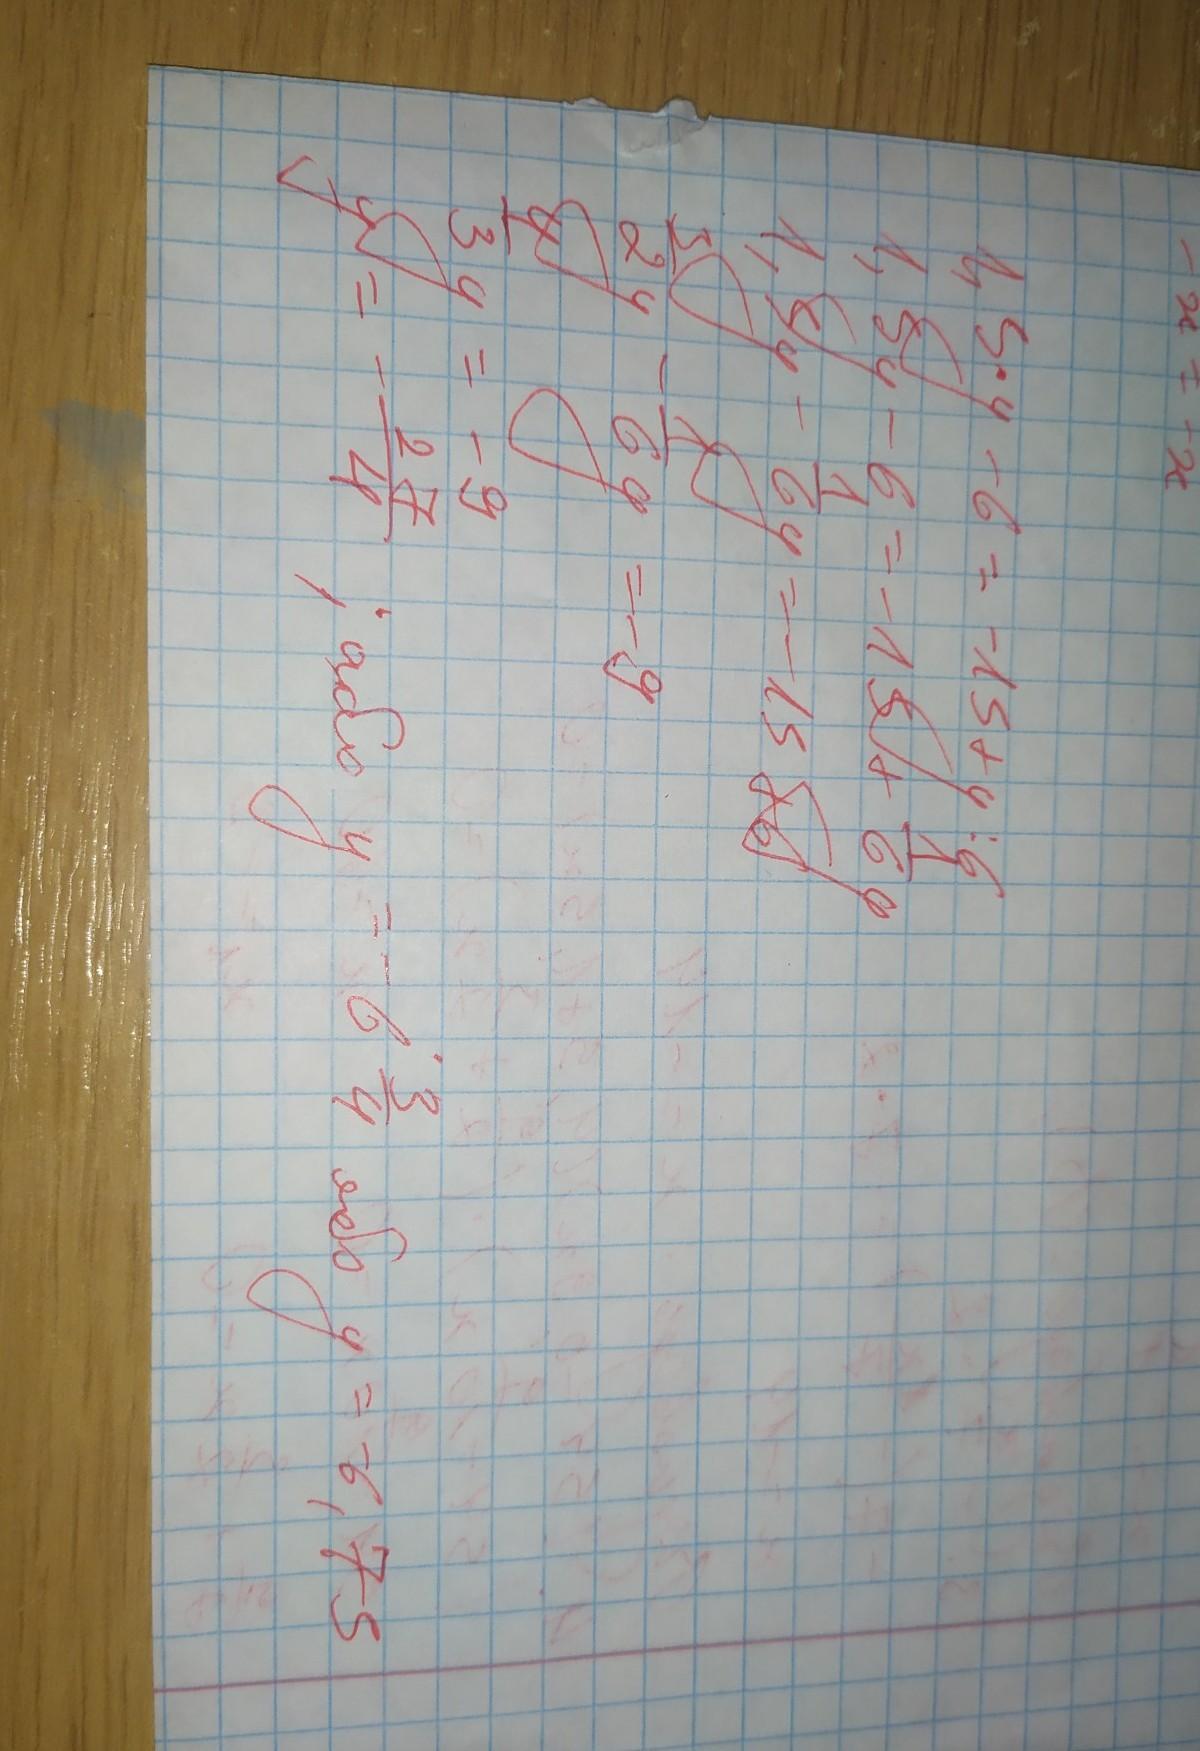 -x = -x
1,5·y - 6 = -15 + y : 6
1,5y - 6 = -15 + 1/6 y
1,5y - 1/6 y = -15 + 6
3/2 y - 1/6 y = -9
4/3 y = -9
y = - 27/4 ; або y = -6 3/4 або y = -6,75